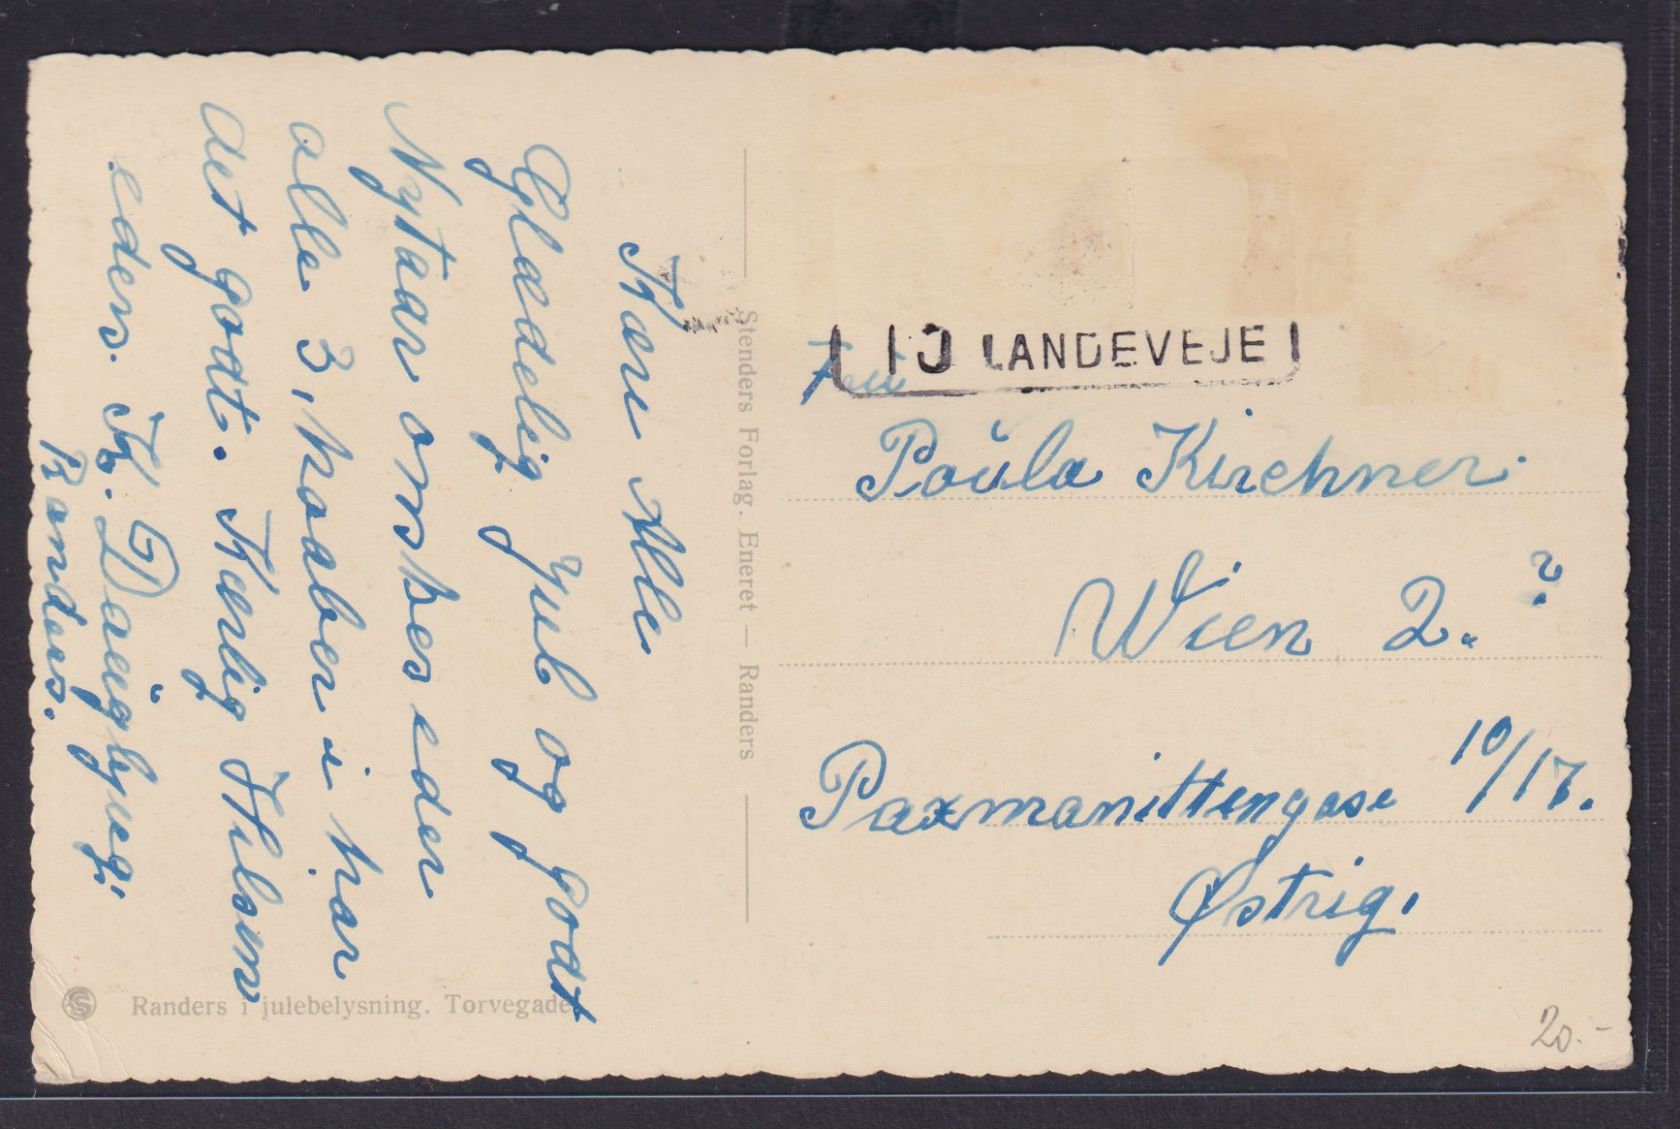 Kære Alle
Glædelig Jul og Godt
Nytaar onskes eder
alle 3, haaber i har
det godt. Kærlig Hilsen
eders. K. Daugbjerg.
Randers.
Stenders Forlag. Eneret — Randers
Randers i julebelysning. Torvegade
LANDEVEJE
Paŭla Kirchner.
Wien 2.
Paxmanittengase 10/17.
Østrig.
20.-